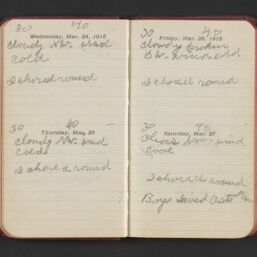 30 40
Wednesday, Mar. 24, 1915
Cloudy NW. wind
cold
I chored round
30 40
Thursday, Mar. 25
Cloudy NW. wind
cold
I chored round
30 40
Friday, Mar. 26, 1915
Cloudy
I chored round
30 40
Saturday, Mar. 27
wind
Cool
I chored round
Boys Sowed Oats